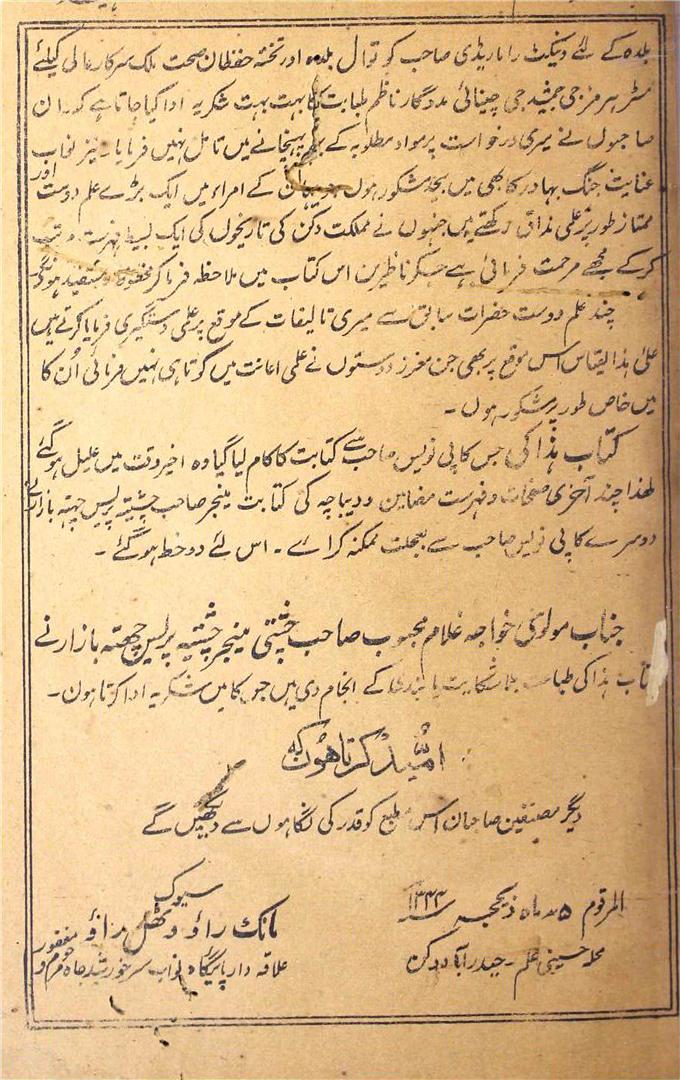 بلدہ کے لئے وینکٹ راماریڈی صاحب کوتوال بلدہ اور تختۂ حفظان صحت ملک سرکار عالی کیلئے
مسٹر ہرمزجی جمشیدجی چینائی مددگار ناظم طبابت کا بہت بہت شکریہ ادا کیا جاتا ہے کہ ان
صاحبوں نے میری درخواست پر مواد مطلوبہ کے بہم پہنچانے میں تامل نہیں فرمایا۔ نیز نواب
عنایت جنگ بہادر کا بھی میں بیحد مشکور ہوں جو یہاں کے امراء میں ایک بڑے علم دوست اور
ممتاز طور پر علمی مذاق رکھتے ہیں جنہوں نے مملکت دکن کی تاریخوں کی ایک بسیط فہرست مرتب
کر کے مجھے مرحمت فرمائی ہے جسکو ناظرین اس کتاب میں ملاحظہ فرما کر محظوظ و مستفید ہونگے
چند علم دوست حضرات سابق سے میری تالیفات کے موقع پر علمی دستگیری فرمایا کرتے ہیں
علیٰ ہذا القیاس اس موقع پر بھی جن معزز دوستوں نے علمی اعانت میں کوتاہی نہیں فرمائی اُن کا
میں خاص طور پر مشکور ہوں۔
کتاب ہذا کی جس کاپی نویس صاحب سے کتابت کا کام لیا گیا وہ اخیر وقت میں علیل ہو گئے
لھذا چند آخری صفحات و فہرست مضامین و دیباچہ کی کتابت مینجر صاحب چشتیہ پریس چھتہ بازار نے
دوسرے کاپی نویس صاحب سے بعجلت ممکنہ کرائے۔ اس لئے دو خط ہو گئے۔
جناب مولوی خواجہ غلام محبوب صاحب چشتی مینجر چشتیہ پریس چھتہ بازار نے
کتاب ہذا کی طباعت بلا شکایت پابندی کے انجام دی ہیں جن کا میں شکریہ ادا کرتا ہوں۔
امُّید کرتا ھُوں کہ
دیگر مصنفین صاحبان اس مطبع کو قدر کی نگاہوں سے دیکھیں گے
المرقوم ۵ ماہ ذیحجہ ۱۳۴۴
سیوک
محلہ حسینی علم۔ حیدرآباد دکن
مانک راؤ وٹھل راؤ
علاقہ دار پائیگاہ نواب سر خورشید جاہ مرحوم و مغفور